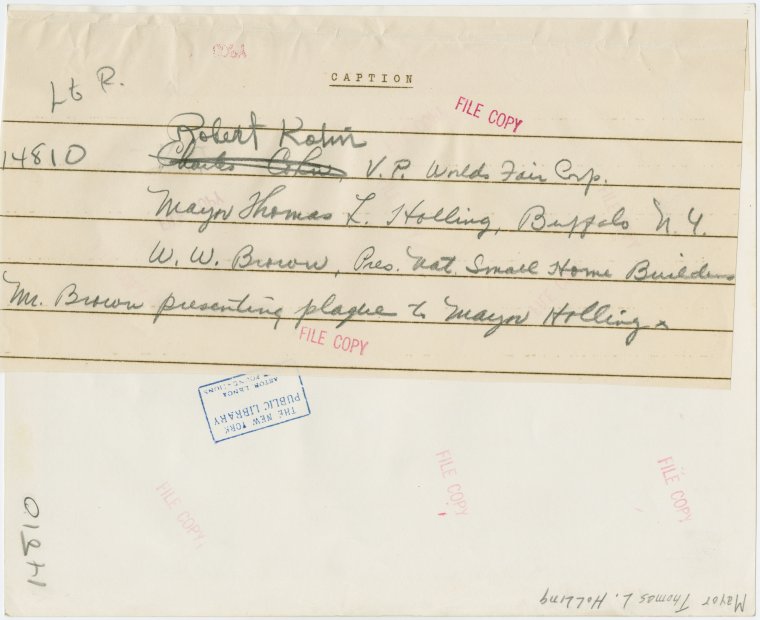 CAPTION
FILE COPY
L to R.
Robert Kohn
14810
V.P. Worlds Fair Corp.
Mayor Thomas L. Holling, Buffalo N.Y.
W. W. Brown, Pres. Nat. Small Home Builders
Mr. Brown presenting plaque to Mayor Holling
FILE COPY
THE NEW YORK
PUBLIC LIBRARY
ASTOR LENOX
FILE COPY
FILE COPY
FILE COPY
14810
Mayor Thomas L. Holling